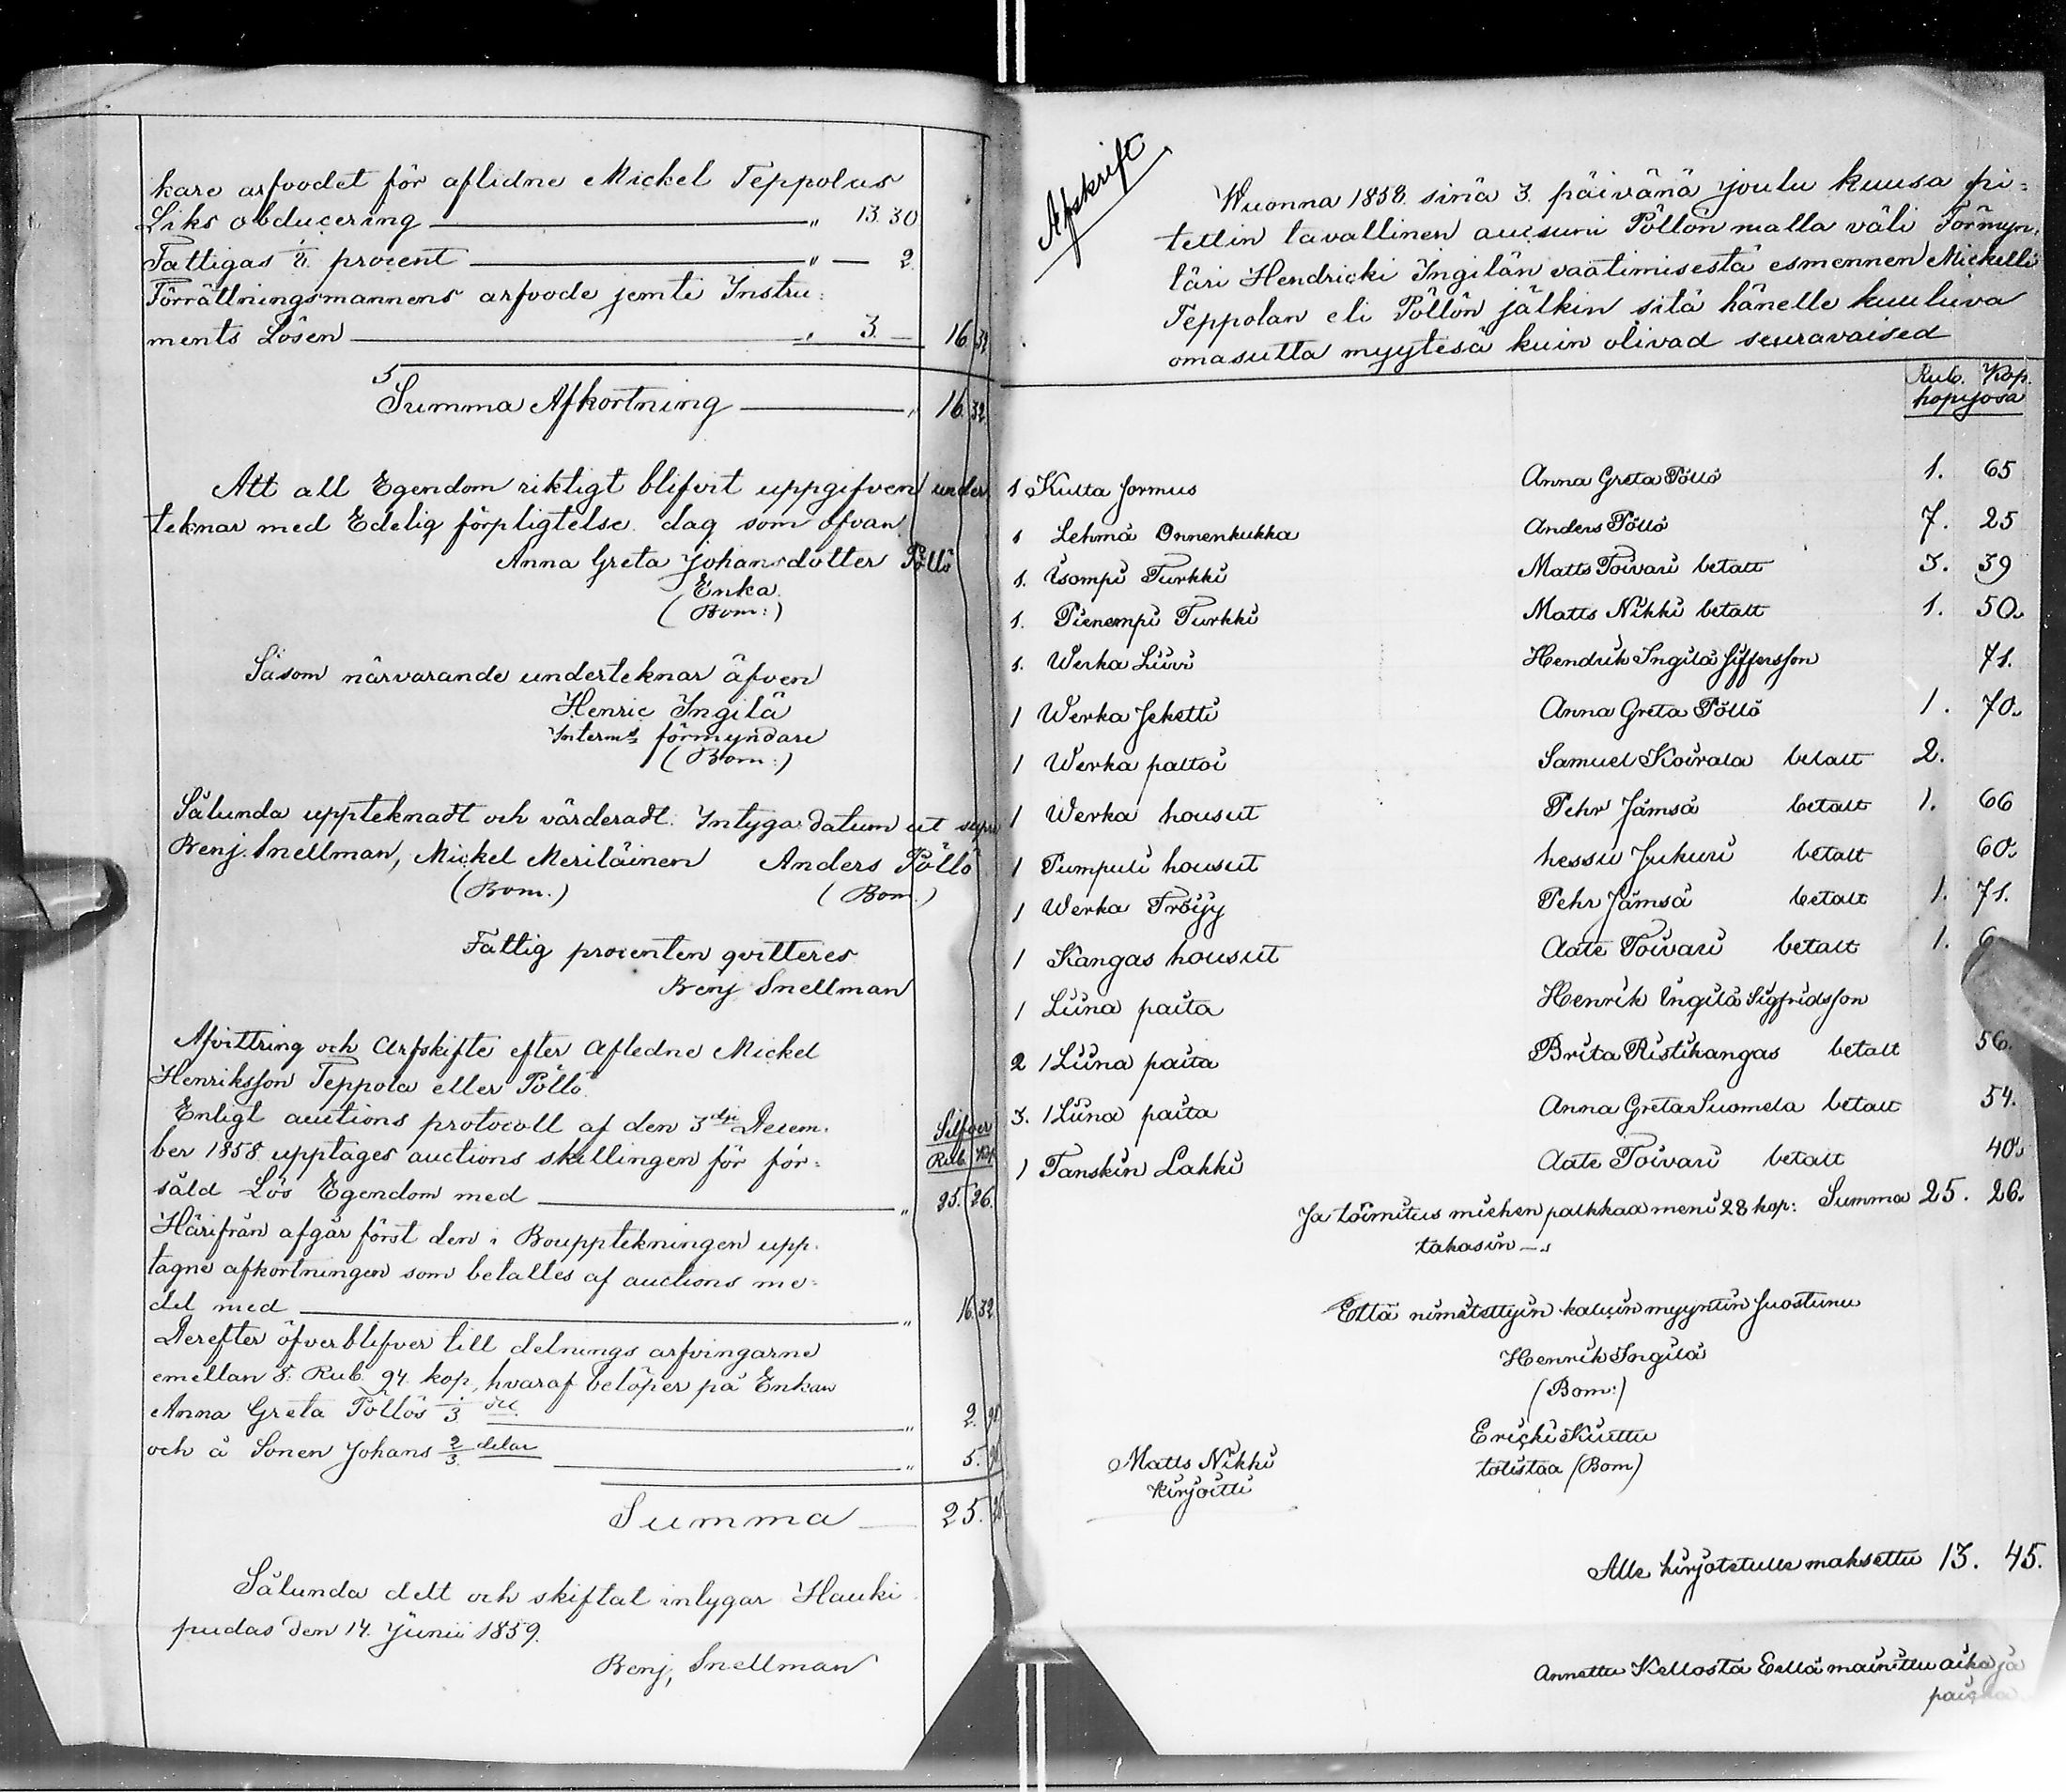 kare arfvodet för aflidne Mickel Teppolas
Liks obducering — „ 13. 30
Fattigas procent — „ — 2
Förrättningsmannens arfvode jemte Instru:
ments Lösen — „ 3. — 16 32
Summa Afkortning — „ 16. 32
Att all Egendom riktigt blifvit uppgifven under
teknar med Edelig förpligtelse. dag som ofvan.
Anna Greta Johansdotter Pöllö
Enka.
(Bom:)
Såsom närvarande underteknar äfven
Henric Ingilä
Interms förmyndare
(Bom:)
Sålunda uppteknadt och värderadt. Intyga datum ut supra
Benj. Snellman, Mickel Meriläinen Anders Pöllö
(Bom.) (Bom.)
Fattig procenten qvitteres
Benj Snellman
Afvittring och Arfskifte efter Afledne Mickel
Henriksson Teppola eller Pöllö.
Enligt auctions protocoll af den 3dje Decem.
Silfver
ber 1858 upptages auctions skillingen för för:
Rub. Kop
såld Lös Egendom med — „ 25. 26.
Härifrån afgår först den i Bouppteknigen upp.
tagne afkortningen som betalles af auctions me:
del med — „ 16. 32
Derefter öfverblifver till delnings arfvingarne
emellan 8: Rub. 94 kop, hvaraf belöper på Enkan
Anna Greta Pöllös 1/3 del — „ 2. 98
och å Sonen Johans 2/3 delar — „ 5. 96
Summa — 25. 26
Sålunda delt och skiftat intygar Hauki
pudas den 14. Junii 1859.
Benj, Snellman
Afskrift
Wuonna 1858. sinä 3. päivänä joulu kuusa pi=
tettin tavallinen aucsuni Pöllön malla väli Förmyn.
täri Hendricki Ingilän vaatimisesta esmennen Mickelli
Teppolan eli Pöllön jälkin sitä hänelle kuuluva
omasutta myytesä kuin olivad seuravaised
Rub. Kop.
hopejosa
1 Kulta formus Anna Greta Pöllö 1. 65
1 Lehmä Onnenkukka Anders Pöllö 7. 25
1. Isompi Turkki Matts Toivari betalt 3. 39
1. Pienempi Turkki Matts Nikki betalt 1. 50.
1. Werka Liivi Hendrik Ingilä Siffersson 71.
1 Werka Jeketti Anna Greta Pöllö 1. 70.
1 Werka paltoi Samuel Koivala betalt 2.
1 Werka housut Pehr Jämsä betalt 1. 66
1 Pumpuli housut hessu Jukuri betalt 60.
1 Werka Tröijy Pehr Jämsä betalt 1. 71.
1 Kangas housut Aate Toivari betalt 1. 6
1 Liina paita Henrik Ingilä Sigfridsson
2 1 Liina paita Brita Ristikangas betalt 56.
3. 1 Liina paita Anna Greta Suomela betalt 54.
1 Tanskin Lakki Aate Toivari betalt 40.
Ja toimitus miehen palkkaa meni 28 kop: Summa 25. 26.
takasin —
Että nimitettyin kaluin myyntiin suostunu
Henrik Ingilä
(Bom:)
Ericki Kuittu
Matts Nikki totistaa (Bom)
kirjoitti
Alle kirjotetulle maksettu 13. 45.
Annettu Kellosta Eellä mainittu aika ja